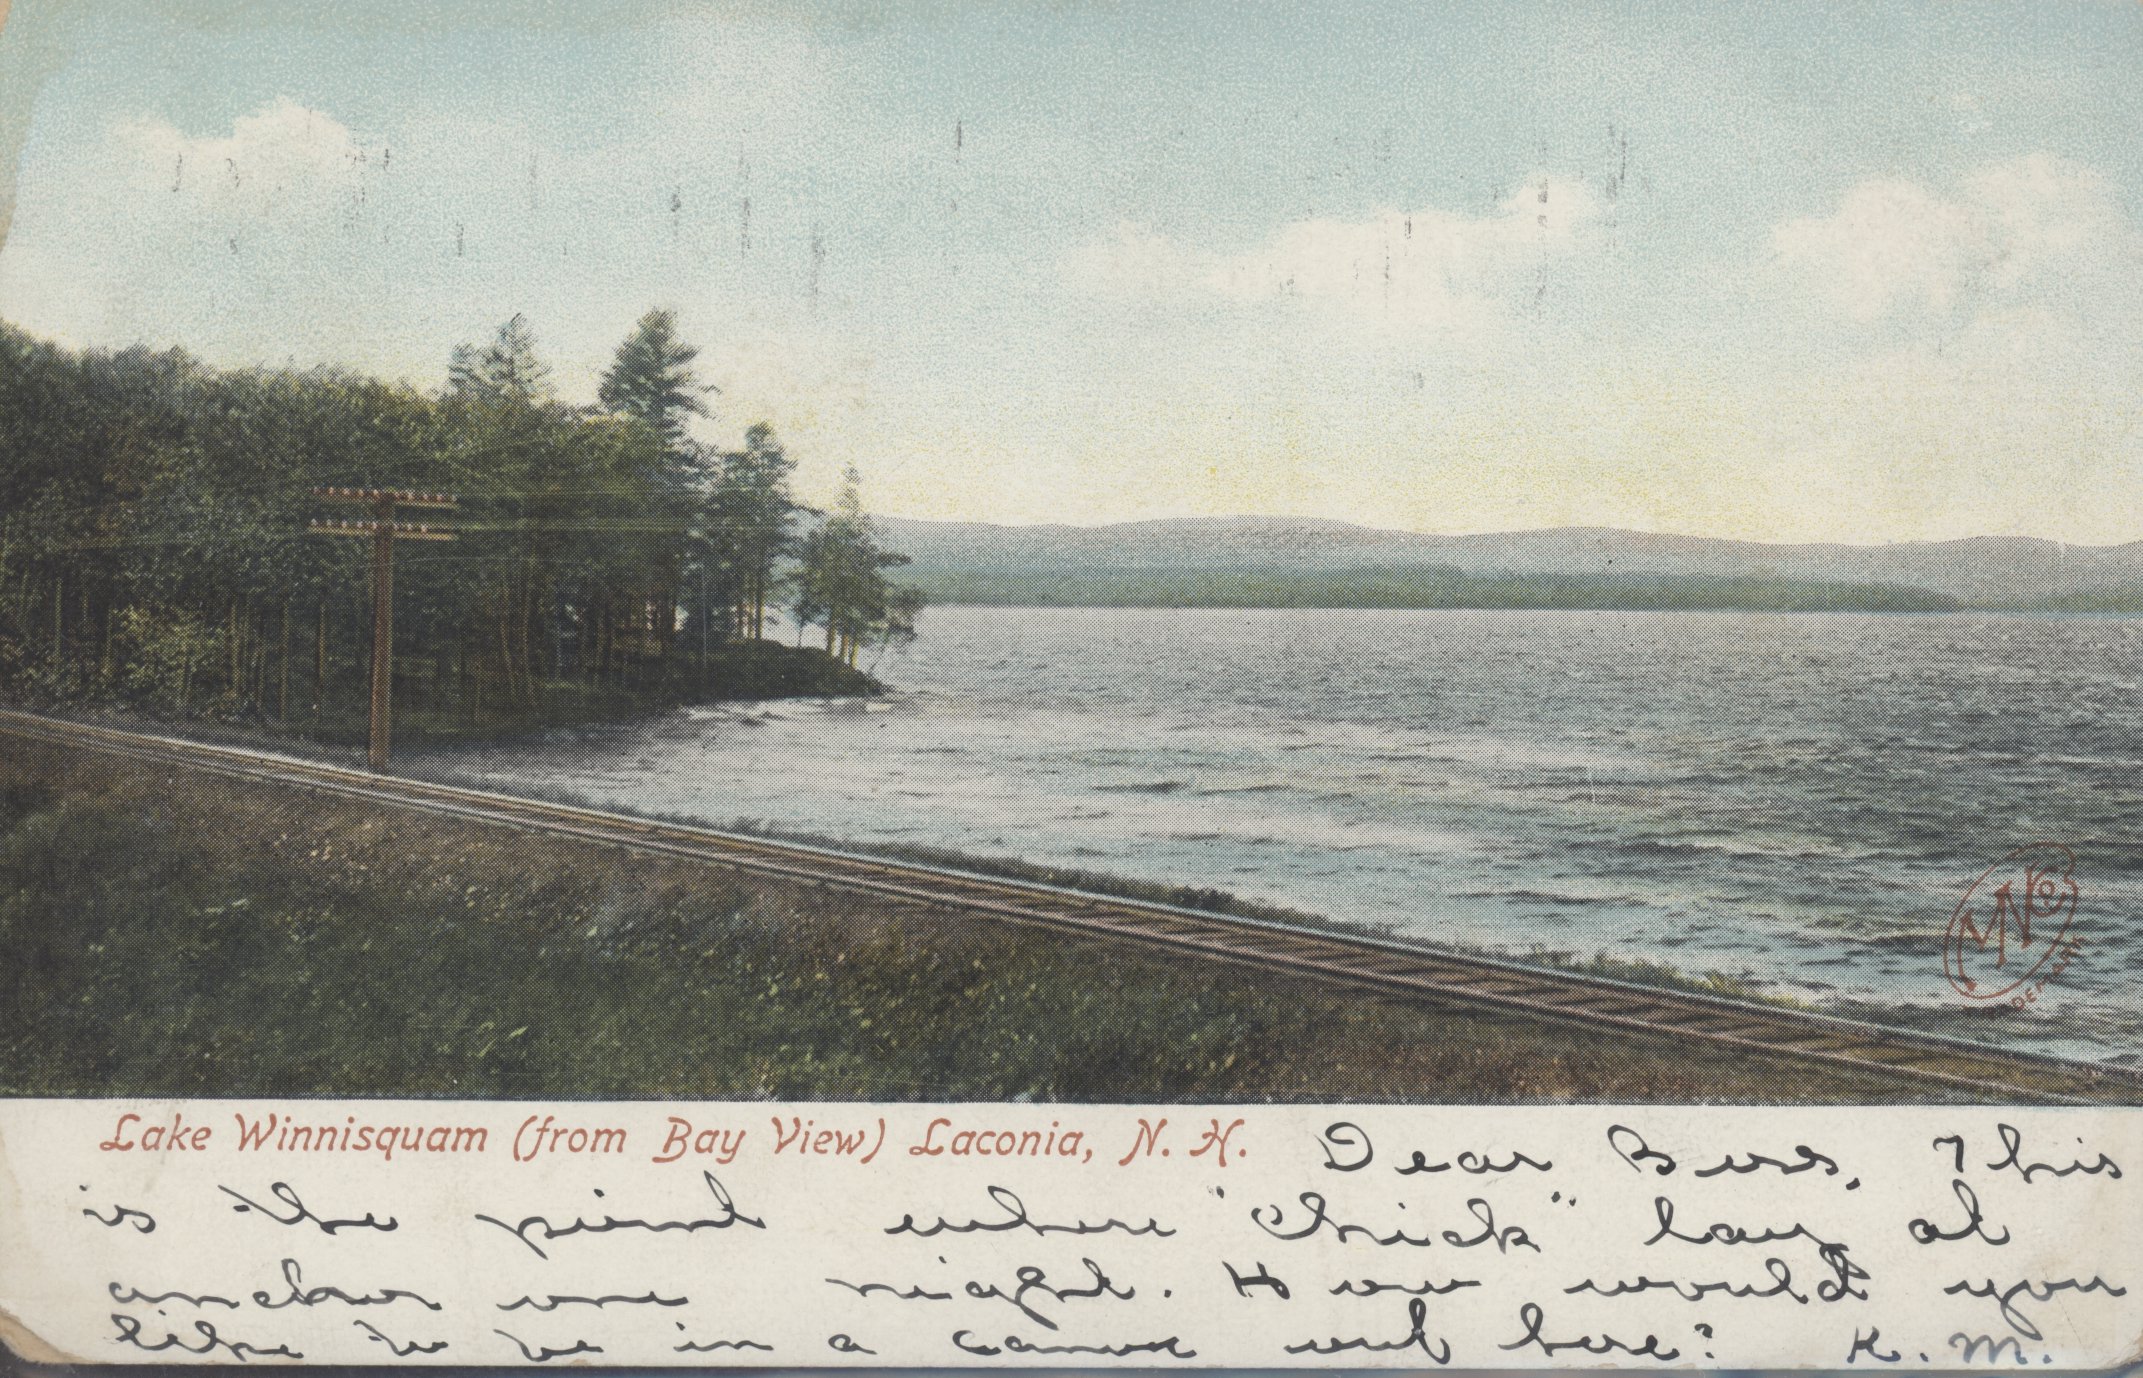 Lake Winnisquam (from Bay View) Laconia, N. H. Dear This
is the point where "Chick" lay at
anchor one night. How would you
like to be in a canoe out here? K. M.